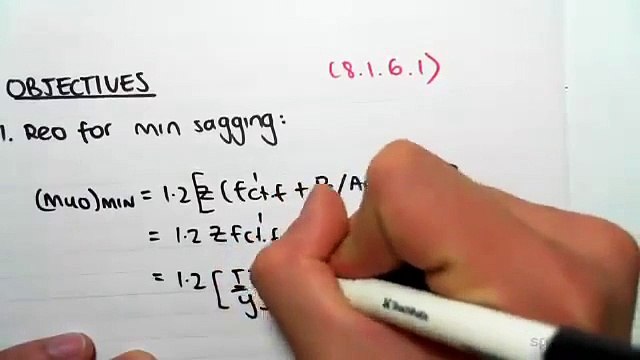 (8.1.6.1)
OBJECTIVES
1. Reo for min sagging:
(Muo)MIN = 1.2 [Z (f'ct.f + P
= 1.2 Z f'ct.f
= 1.2 [ I/y